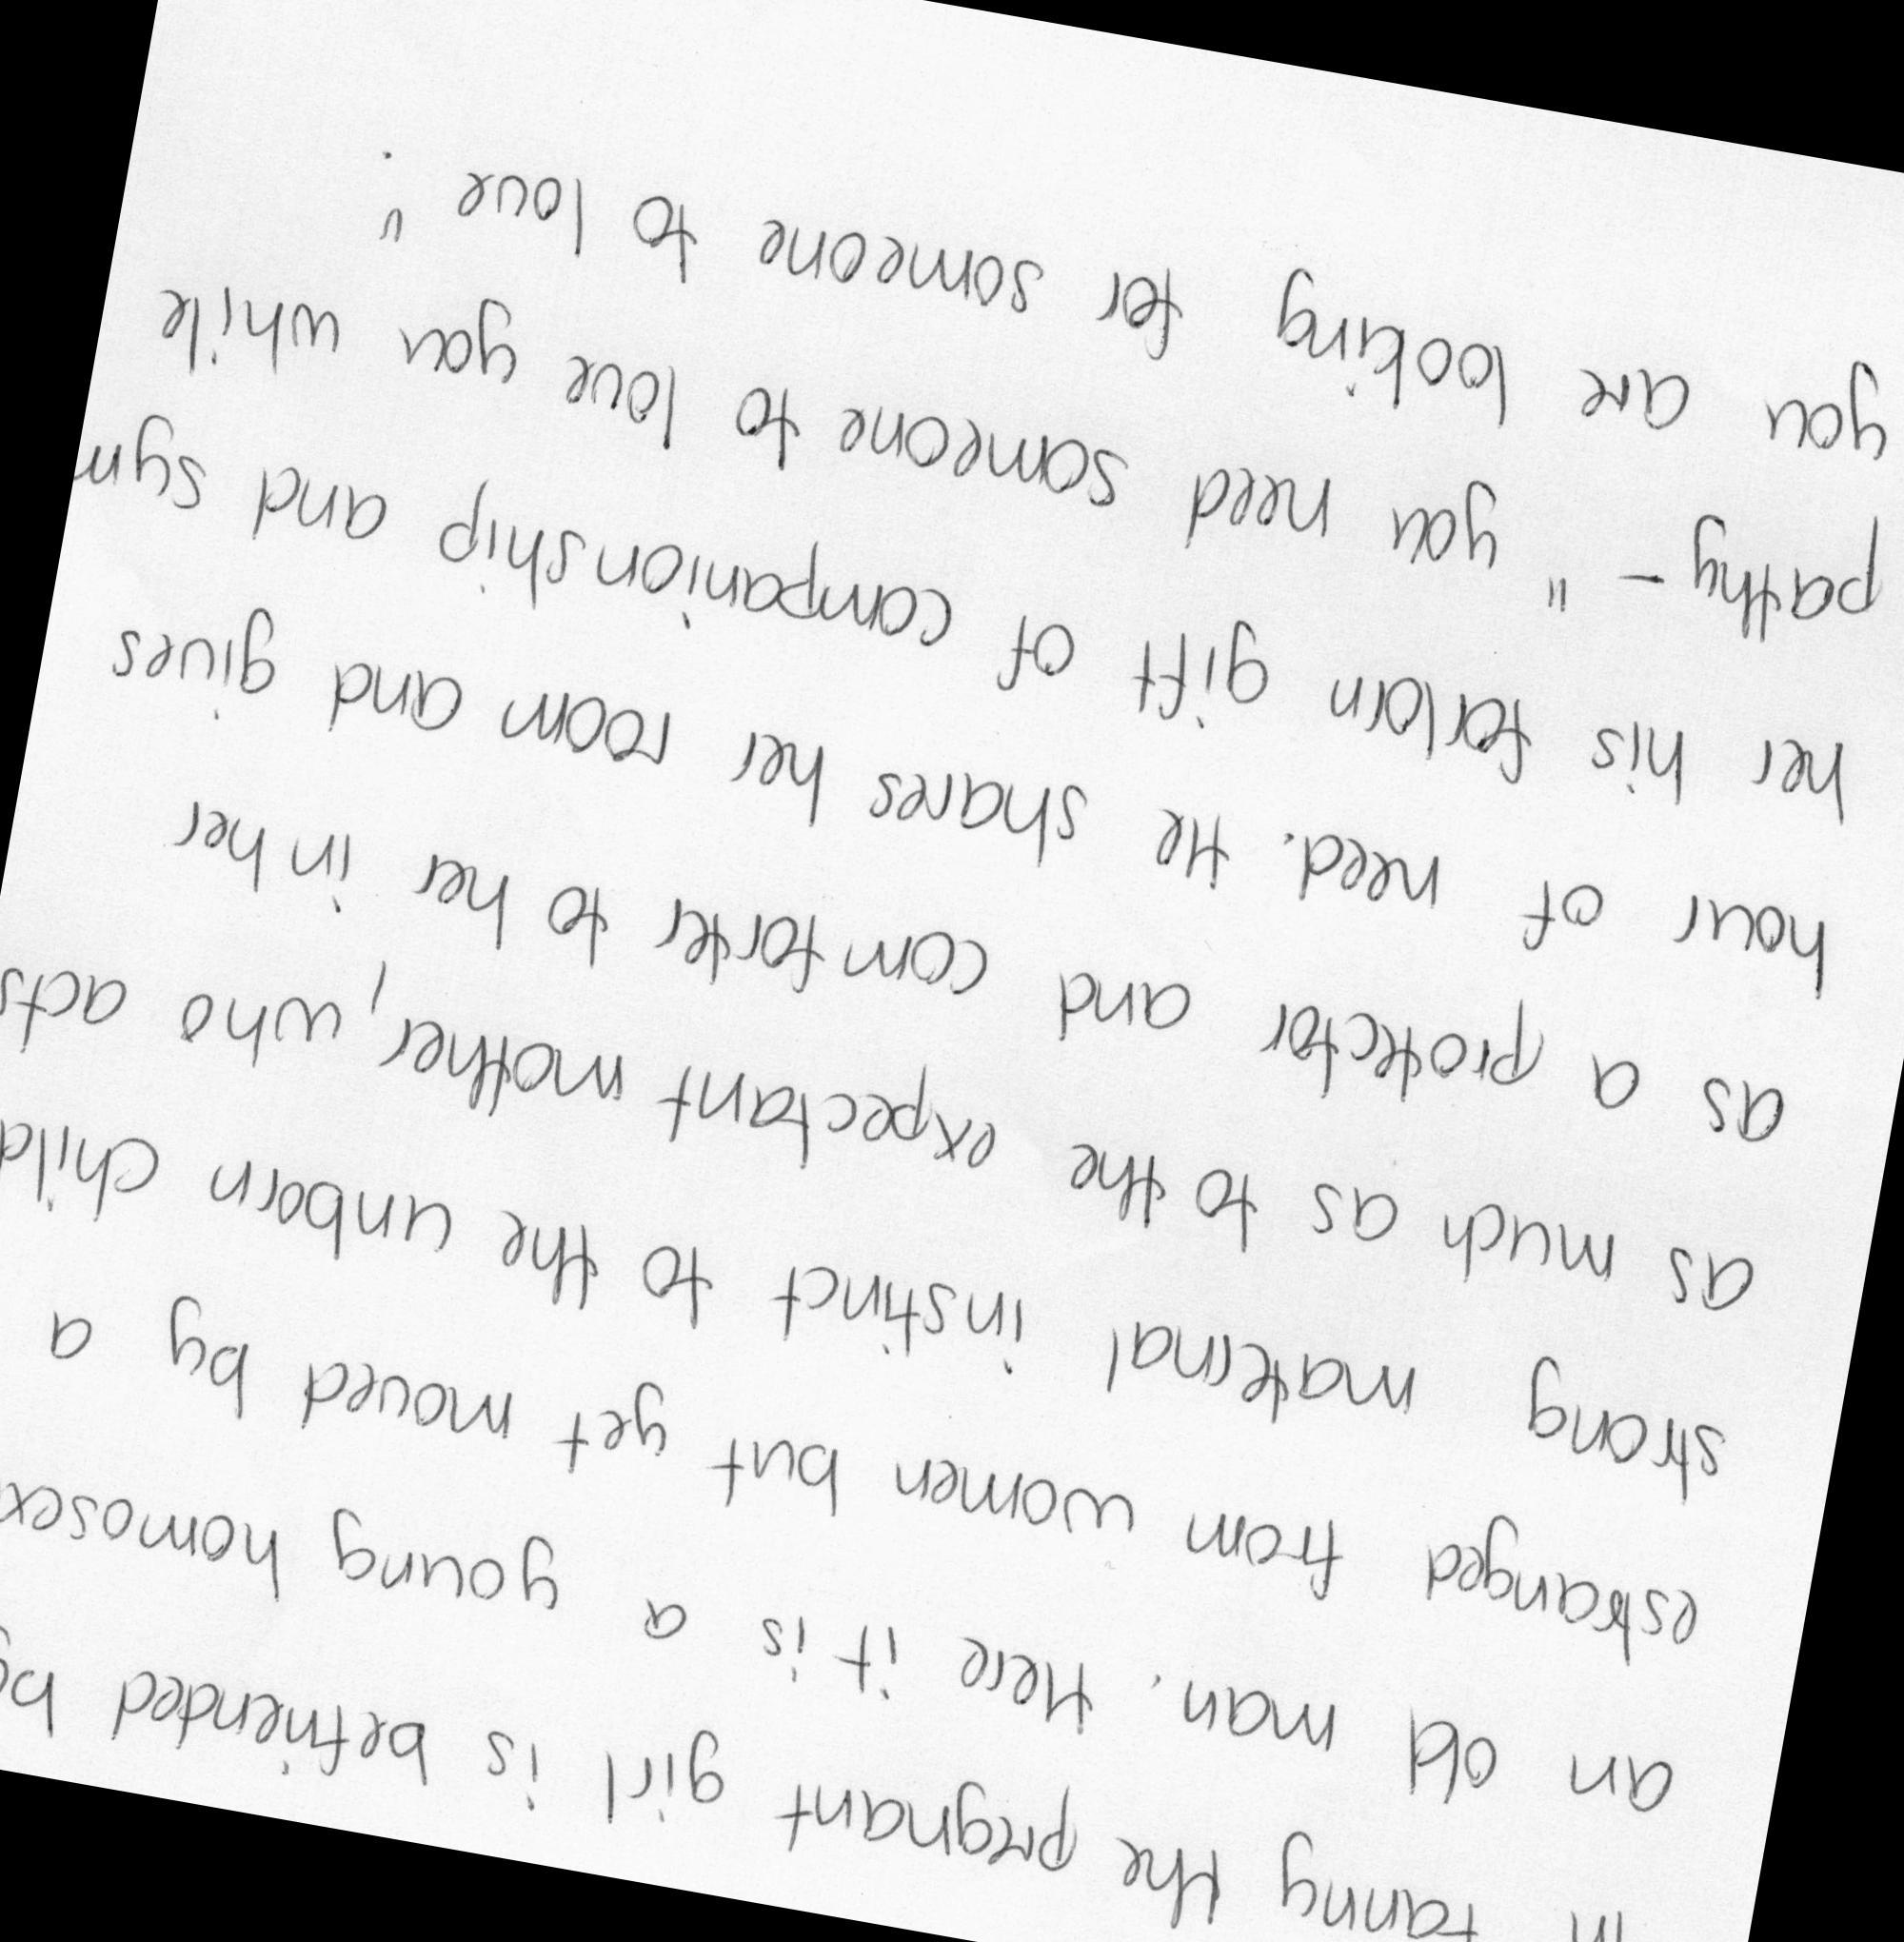 in Fanny the pregnant girl is befriended by
an old man. Here it is a young homosex
estranged from women but yet moved by a
strong maternal instinct to the unborn child
as much as to the expectant mother, who acts
as a protector and comforter to her in her
hour of need. He shares her room and gives
her his forlorn gift of companionship and sym
pathy - " you need someone to love you while
you are looking for someone to love " .